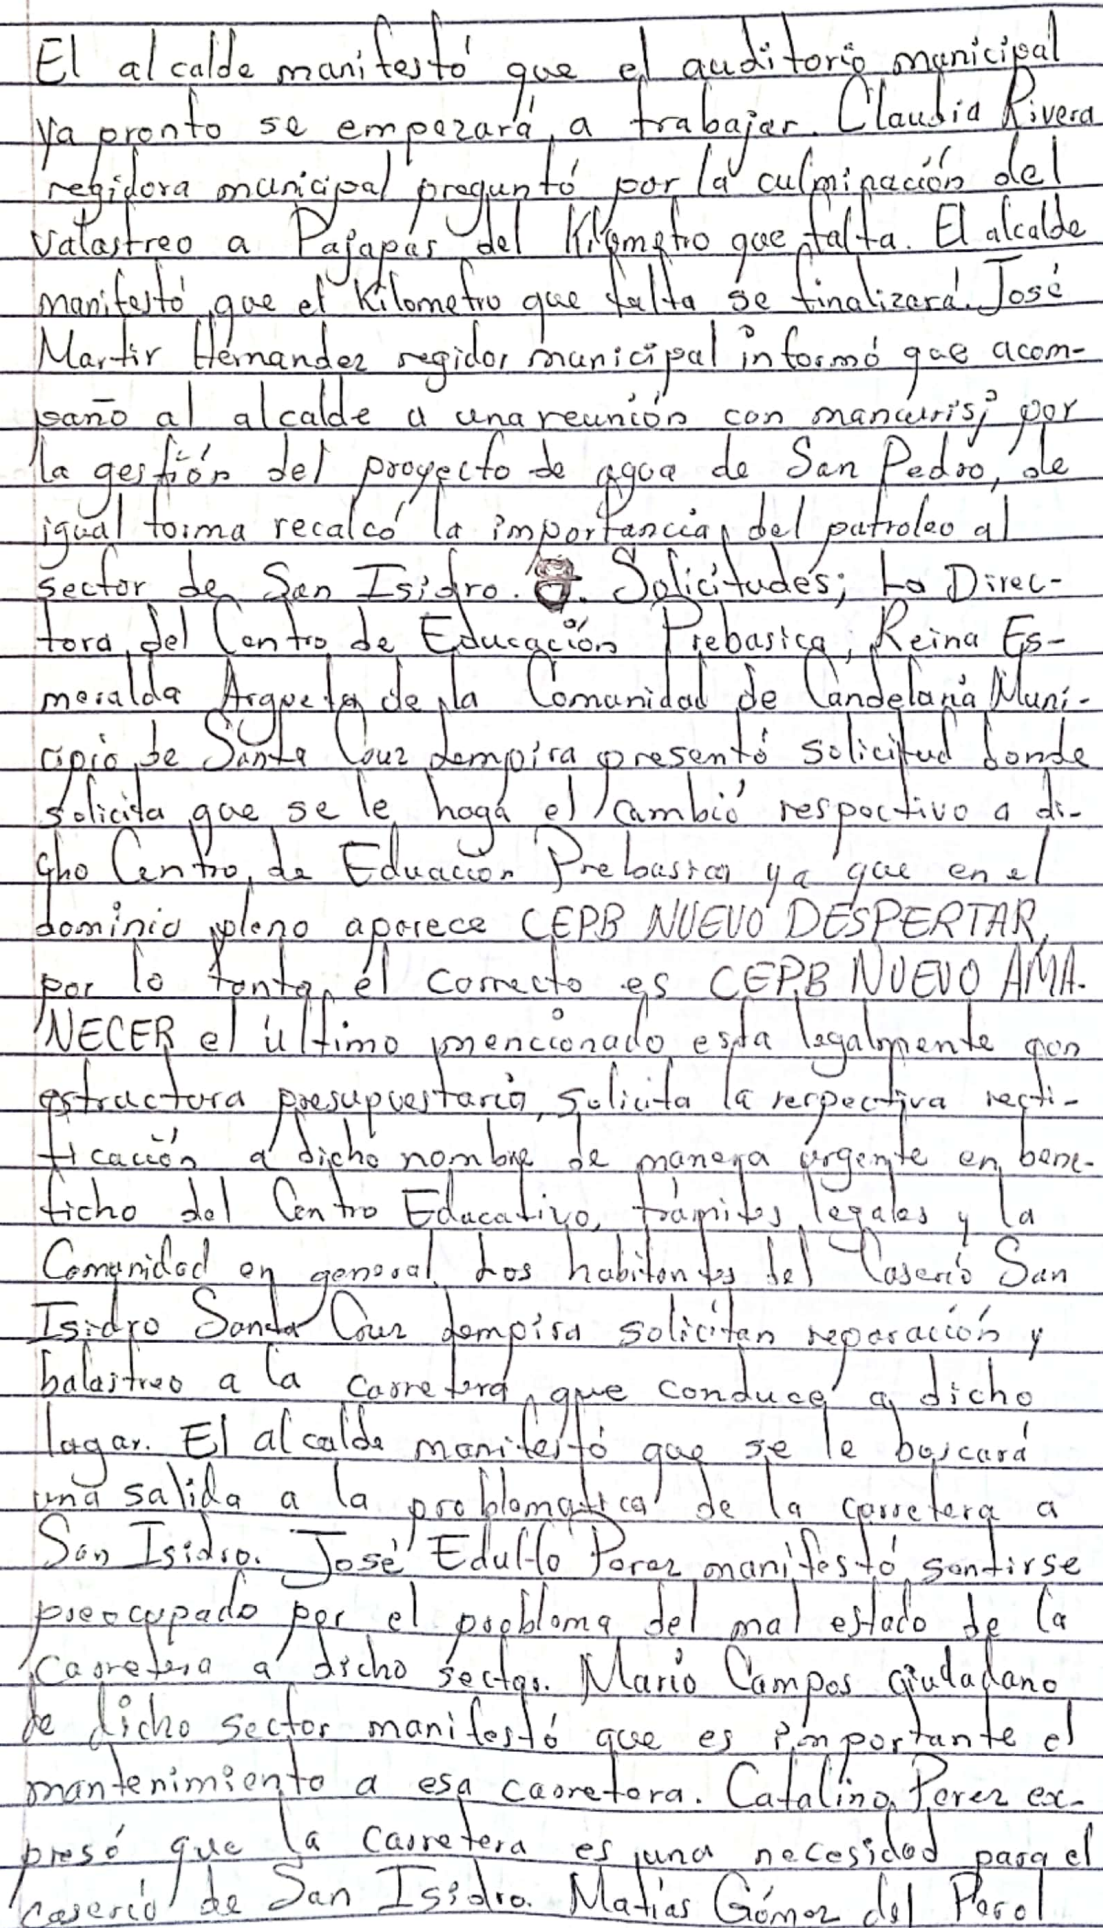 El alcalde manifestó que el auditorio municipal
ya pronto se empezará a trabajar. Claudia Rivera
regidora municipal preguntó por la culminación del
valastreo a Pajapas del Kilometro que falta. El alcalde
manifestó que el Kilometro que falta se finalizará. José
Martir Hernandez regidor municipal informó que acom-
pañó al alcalde a una reunión con mancuris; por
la gestión del proyecto de agua de San Pedro, de
igual forma recalcó la importancia del patroleo al
sector de San Isidro. Solicitudes; La Direc-
tora del Centro de Educación Prebasica, Reina Es-
meralda Argueta de la Comunidad de Candelaria Muni-
cipio de Santa Cruz Lempira presentó solicitud donde
solicita que se le haga el cambio respectivo a di-
cho Centro de Eduacion Prebasica ya que en el
dominio pleno aparece CEPB NUEVO DESPERTAR,
por lo tanto el correcto es CEPB NUEVO AMA-
NECER el último mencionado esta legalmente con
estructura presupuestaria, solicita la respectiva recti-
ficación a dicho nombre de manera urgente en bene-
ficho del Centro Educativo, trámites legales y la
Comunidad en general. Los habitantes del Caserio San
Isidro Santa Cruz Lempira solicitan reparación y
balastreo a la carretera que conduce a dicho
lugar. El alcalde manifestó que se le buscará
una salida a la problematica de la carretera a
San Isidro. José Edulfo Perez manifestó sentirse
preocupado por el problema del mal estado de la
carretera a dicho sector. Mario Campos ciudadano
de dicho sector manifestó que es importante el
mantenimiento a esa carretera. Catalino Perez ex-
presó que la carretera es una necesidad para el
caserio de San Isidro. Matias Gómez del Perol